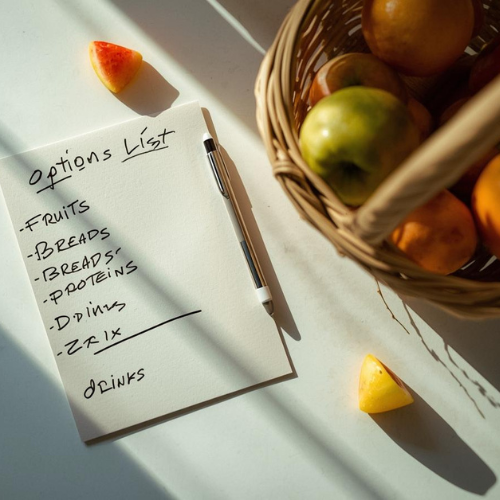 Options List
-FRUITS
-BREADS
-BREADS'
-PROTEINS
-DDinks
-ZRIX
dRINKS